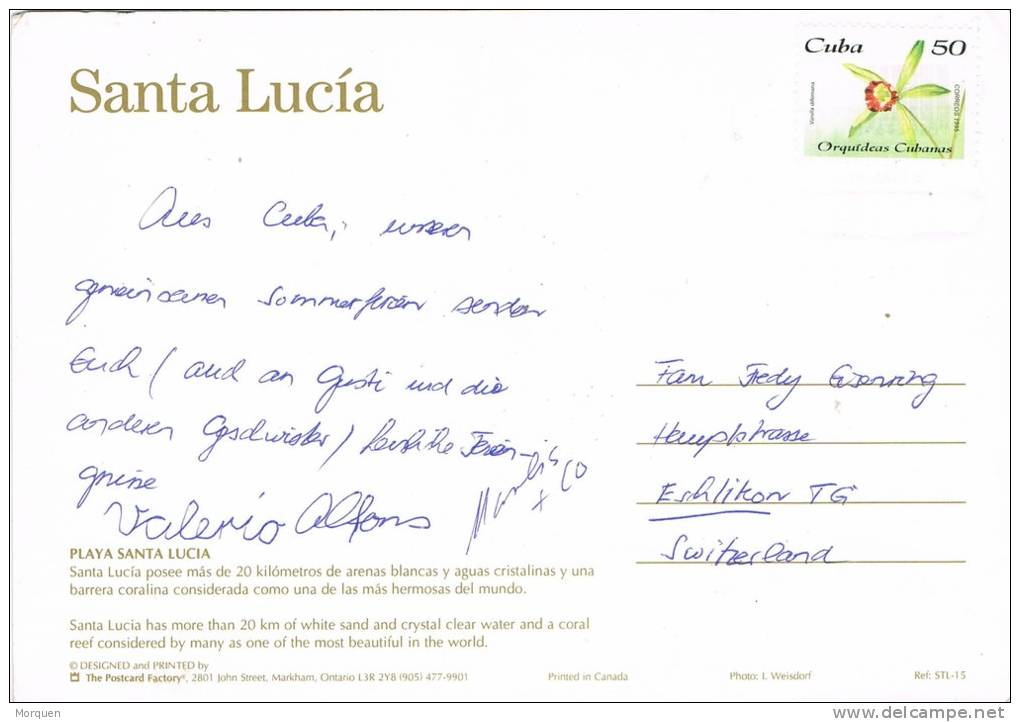 Santa Lucía
Cuba 50
CORREOS 1995
Orquídeas Cubanas
Aus Cuba, unseren
gemeinsamen Sommerferien senden
Euch (auch an Gusti und die
anderen Geschwister) herzliche Ferien-
grüsse
Valerio Alfons
+ Co
Fam Fredy
Hauptstrasse
Eshlikon TG
Switzerland
PLAYA SANTA LUCIA
Santa Lucía posee más de 20 kilómetros de arenas blancas y aguas cristalinas y una
barrera coralina considerada como una de las más hermosas del mundo.
Santa Lucia has more than 20 km of white sand and crystal clear water and a coral
reef considered by many as one of the most beautiful in the world.
© DESIGNED and PRINTED by
The Postcard Factory®, 2801 John Street, Markham, Ontario L3R 2Y8 (905) 477-9901
Printed in Canada
Photo: I. Weisdorf
Ref: STL-15
Morquen
www.delcampe.net